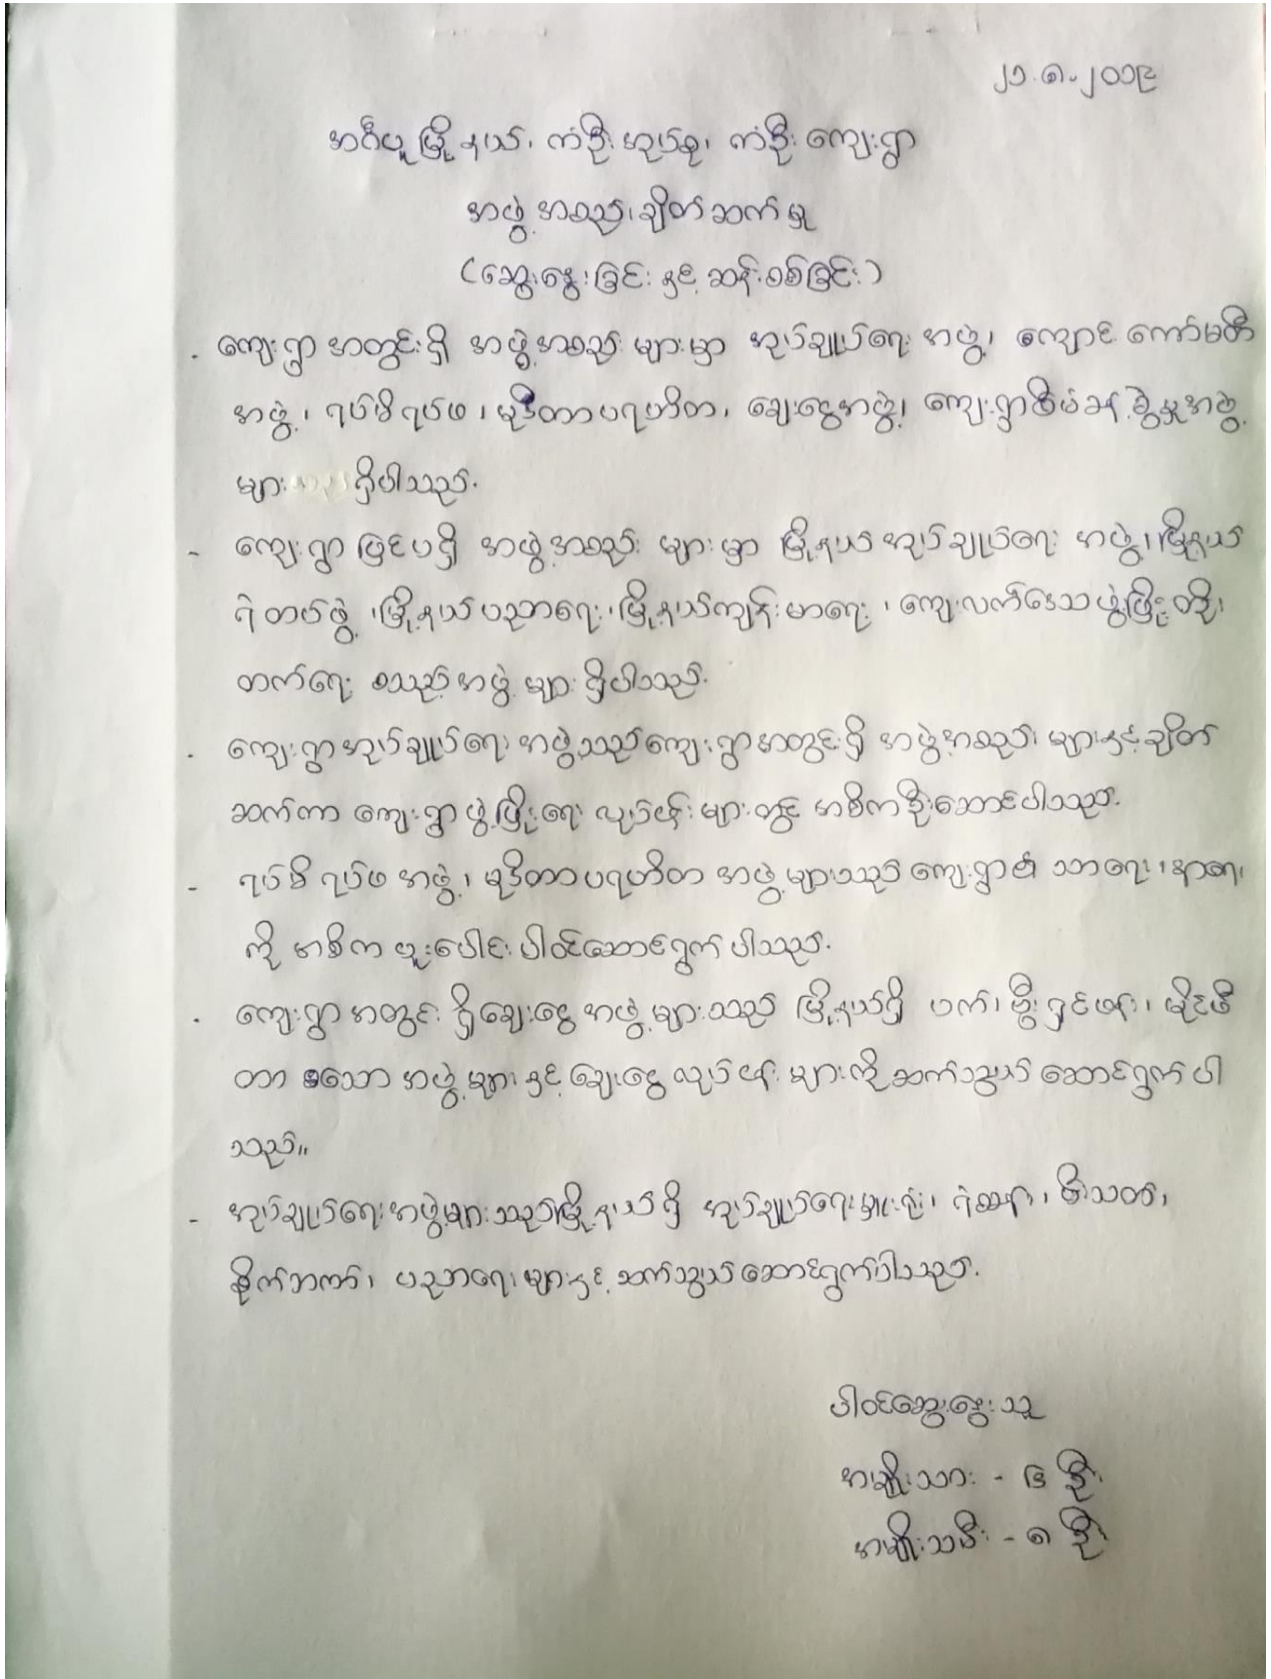 ၂၁.၈.၂၀၁၉
အင်္ဂပူမြို့နယ်၊ ကံဦးအုပ်စု၊ ကံဦးကျေးရွာ
အဖွဲ့အစည်းချိတ်ဆက်မှု
(ဆွေးနွေးခြင်းနှင့် ဆန်းစစ်ခြင်း)
. ကျေးရွာအတွင်းရှိ အဖွဲ့အစည်းများမှာ အုပ်ချုပ်ရေးအဖွဲ့၊ ကျောင်းကော်မတီ
အဖွဲ့၊ ရပ်မိရပ်ဖ၊ မုဒိတာပရဟိတ၊ ချေးငွေအဖွဲ့၊ ကျေးရွာစီမံခန့်ခွဲမှုအဖွဲ့
များ ရှိပါသည်.
- ကျေးရွာပြင်ပရှိ အဖွဲ့အစည်းများမှာ မြို့နယ်အုပ်ချုပ်ရေးအဖွဲ့၊ မြို့နယ်
ရဲတပ်ဖွဲ့၊ မြို့နယ်ပညာရေး၊ မြို့နယ်ကျန်းမာရေး၊ ကျေးလက်ဒေသဖွံ့ဖြိုးတိုး
တက်ရေး စသည့်အဖွဲ့များရှိပါသည်.
. ကျေးရွာအုပ်ချုပ်ရေးအဖွဲ့သည်ကျေးရွာအတွင်းရှိ အဖွဲ့အစည်းများနှင့်ချိတ်
ဆက်ကာ ကျေးရွာဖွံ့ဖြိုးရေး လုပ်ငန်းများတွင် အဓိကဦးဆောင်ပါသည်.
- ရပ်မိရပ်ဖအဖွဲ့၊ မုဒိတာပရဟိတ အဖွဲ့များသည် ကျေးရွာ၏ သာရေး၊ နာရေး
ကို အဓိက ပူးပေါင်းပါဝင်ဆောင်ရွက်ပါသည်.
. ကျေးရွာအတွင်းရှိချေးငွေအဖွဲ့များသည် မြို့နယ်ရှိ ပက်၊ မွီးရှင်ဖန်း၊ မိုင်ဖီ
တာ စသော အဖွဲ့များနှင့် ချေးငွေလုပ်ငန်းများကိုဆက်သွယ်ဆောင်ရွက်ပါ
သည်။
- အုပ်ချုပ်ရေးအဖွဲ့များသည်မြို့နယ်ရှိ အုပ်ချုပ်ရေးမှူးရုံး၊ ရဲစခန်း၊ မီးသတ်၊
စိုက်ဘဏ်၊ ပညာရေးများနှင့် ဆက်သွယ်ဆောင်ရွက်ပါသည်.
ပါဝင်ဆွေးနွေးသူ
အမျိုးသား - ၆ ဦး
အမျိုးသမီး - ၈ ဦး